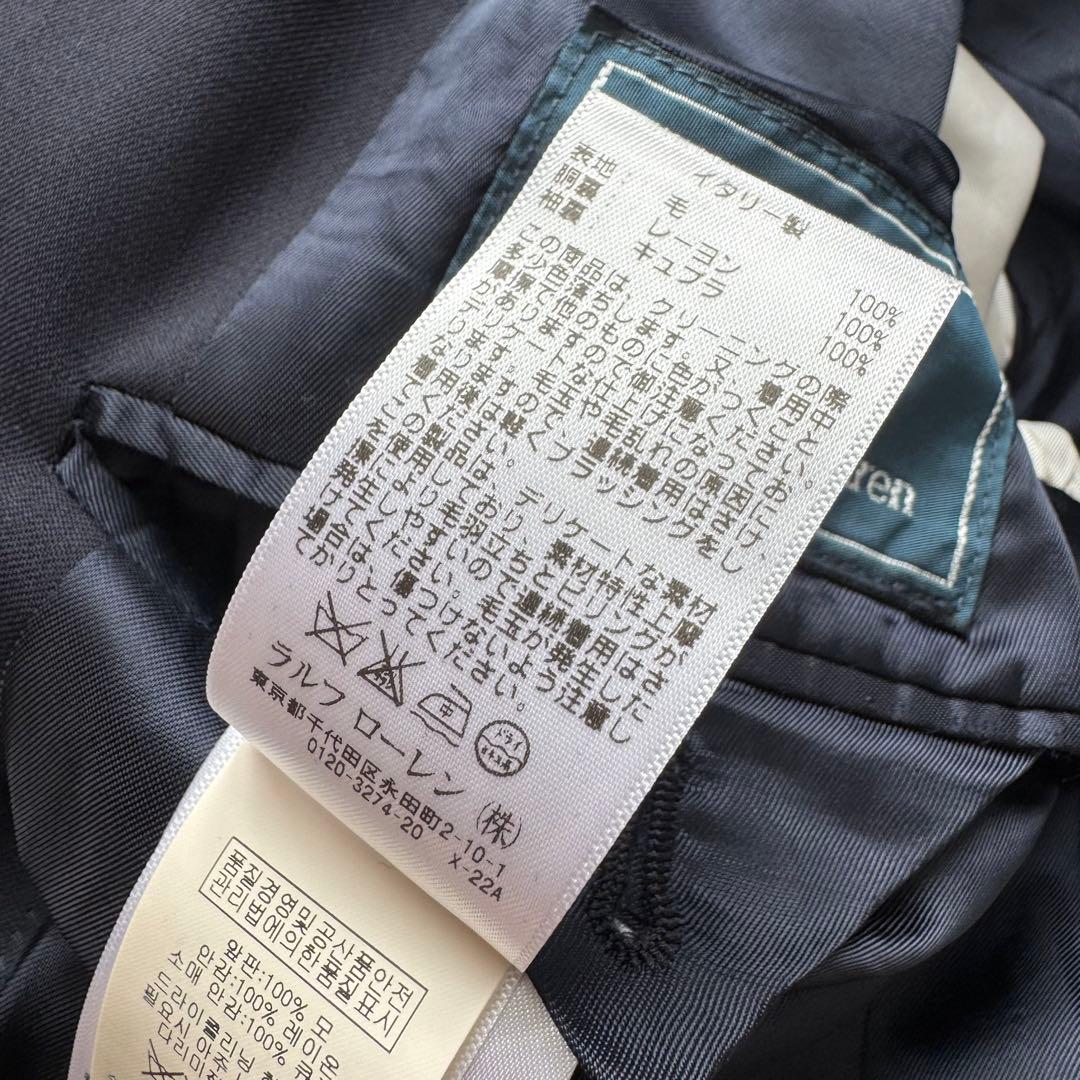 イタリー製
表地 毛 100%
胴裏 レーヨン 100%
袖裏 キュプラ 100%
この商品は、クリーニングの際
多少色落ちします。又、着用中
摩擦で他のものに色がつくこと
がありますので御注意ください。
デリケートな仕上げになってお
りますので毛玉や毛乱れの原因に
なります。連続着用はさけ、
着用後は軽くブラッシングをし
てください。
この製品は、デリケートな素材
を使用しており、素材特性上摩
擦により毛羽立ちとピリングが
発生しやすいので連続着用はさ
けてください。毛玉が発生した
場合は、傷つけないよう注意し
てかりとってください。
中 ドライ
ラルフ ローレン (株)
東京都千代田区永田町2-10-1
0120-3274-20 X-22A
ren
품질경영및공산품안전
관리법에의한품질표시
앞판:100% 모
안감:100% 레이온
소매 안감:100%
드라이클리닝
필요시 아주
다리미